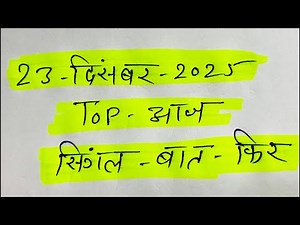 23-दिसंबर-2025
TOP-आज
सिंगल-बात-किर